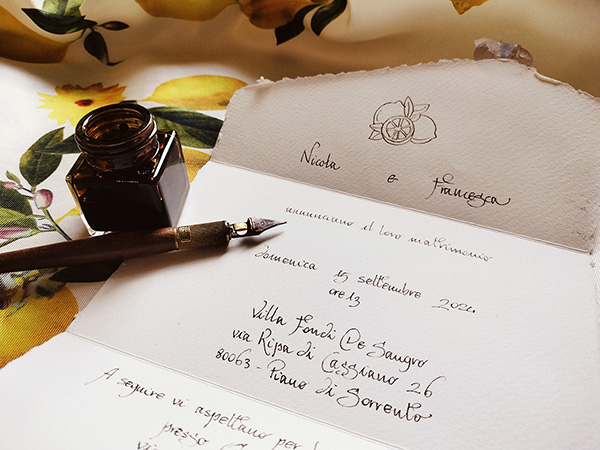 Nicola e Francesca
annunciano il loro matrimonio
domenica 15 settembre 2024
ore 13
Villa Fondi De Sangro
via Ripa di Cassiano 26
80063 - Piano di Sorrento
A seguire vi aspettano per
presso